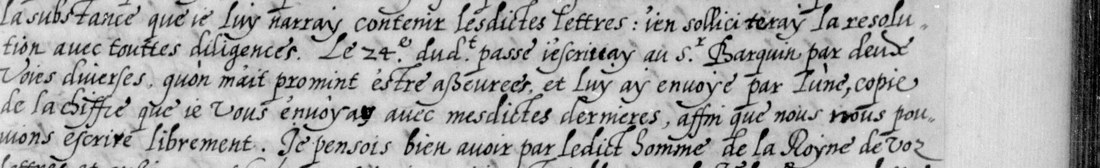 la substance que ie luy narray contenir lesdictes lettres: i'en solliciteray la resolu-
tion avec touttes diligences. Le 24.e dud.t passe i'escrivay au S.r Barquin par deux
voies diverses, qu'on m'ait promint estre asseurees, et luy ay envoye par l'une, copie
de la chiffre que ie vous envoyay avec mesdictes dernieres, affin que nous nous pou-
uions escrire librement. Je pensois bien avoir par ledict homme de la Royne de voz